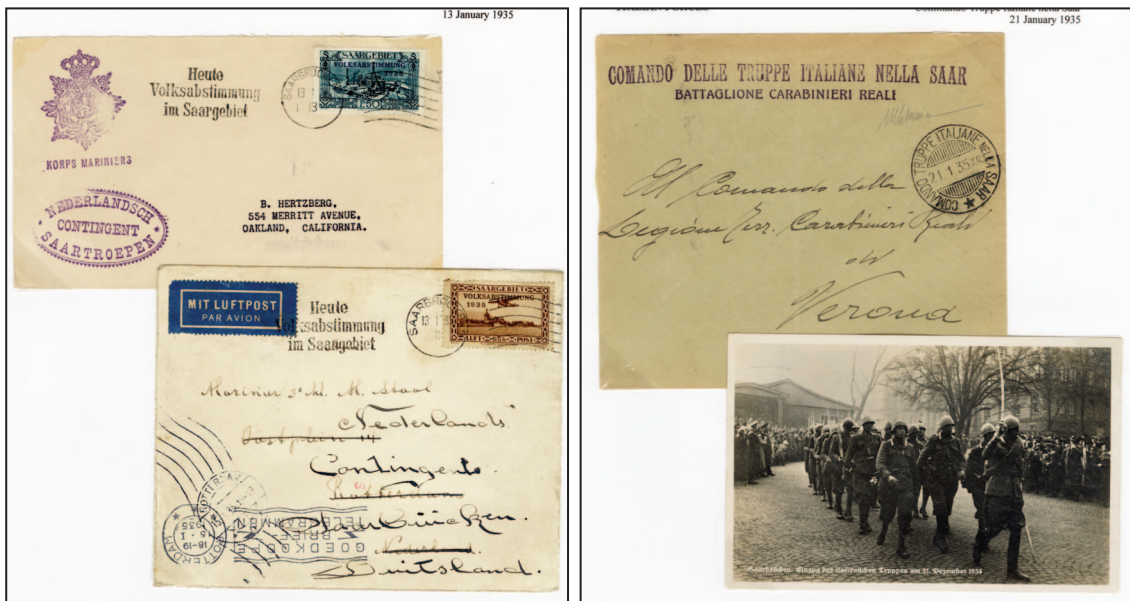 13 January 1935
Heute
Volksabstimmung
im Saargebiet
SAARGEBIET
VOLKSABSTIMMUNG
1935
KORPS MARINIERS
NEDERLANDSCH
CONTINGENT
SAARTROEPEN
B. HERTZBERG,
554 MERRITT AVENUE,
OAKLAND, CALIFORNIA.
MIT LUFTPOST
PAR AVION
Heute
Volksabstimmung
im Saargebiet
SAARGEBIET
VOLKSABSTIMMUNG
1935
Marinier 3e kl. M. Staal
Nederlands
Contingent
Rotterdam
Saarbrücken.
Nederland.
Duitsland.
GOEDKOPE
BRIEF
TELEGRAMMEN
ROTTERDAM
18-19
15 · I
1935
Commando Truppe Italiane nella Saar
21 January 1935
COMANDO DELLE TRUPPE ITALIANE NELLA SAAR
BATTAGLIONE CARABINIERI REALI
COMANDO TRUPPE ITALIANE NELLA SAAR
21.1.35.XIII
Al Comando della
Legione Terr. Carabinieri Reali
di
Verona
Saarbrücken. Einzug der italienischen Truppen am 21. Dezember 1934